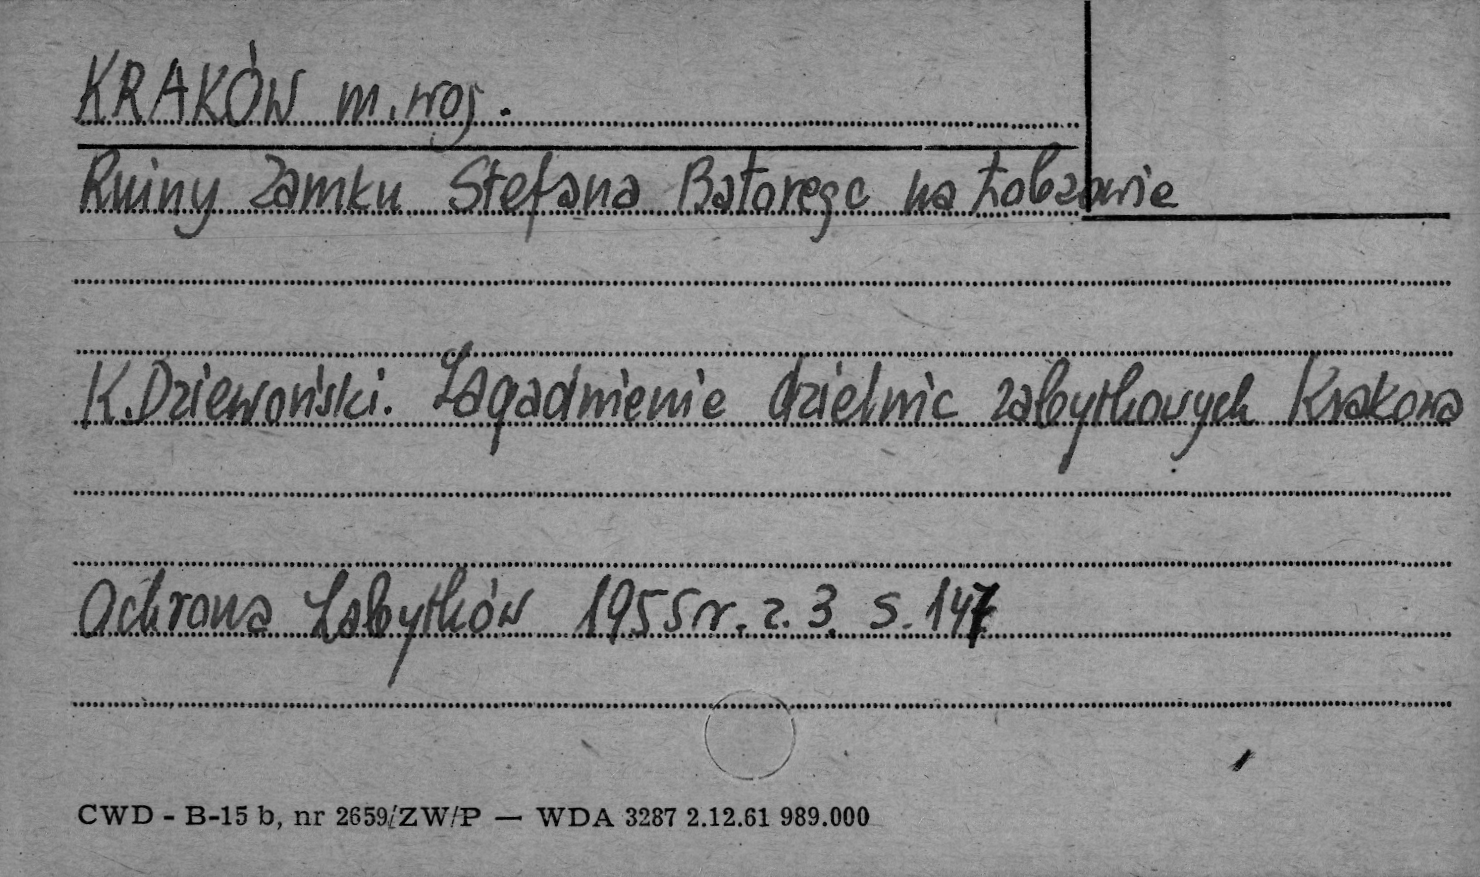 KRAKÓW m. woj.
Ruiny Zamku Stefana Batorego na Łobzowie
K. Dziewoński. Zagadnienie dzielnic zabytkowych Krakowa
Ochrona Zabytków 1955 r. z. 3. s. 147
CWD - B-15 b, nr 2659/ZW/P — WDA 3287 2.12.61 989.000